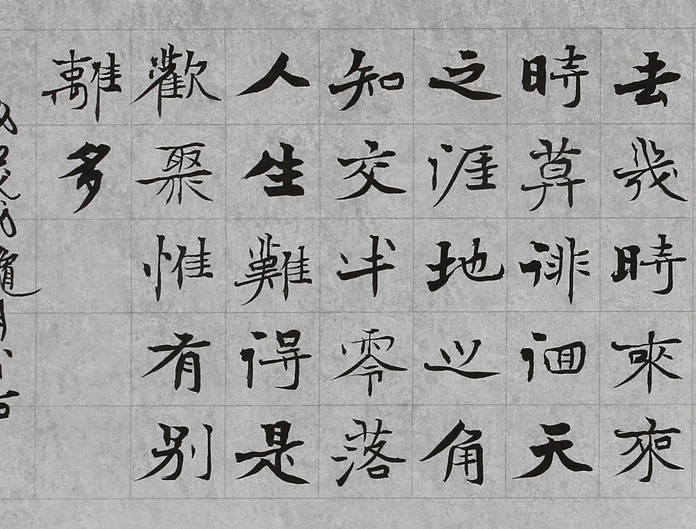 去幾時來來
時莫徘徊天
之涯地之角
知交半零落
人生難得是
歡聚惟有別
離多